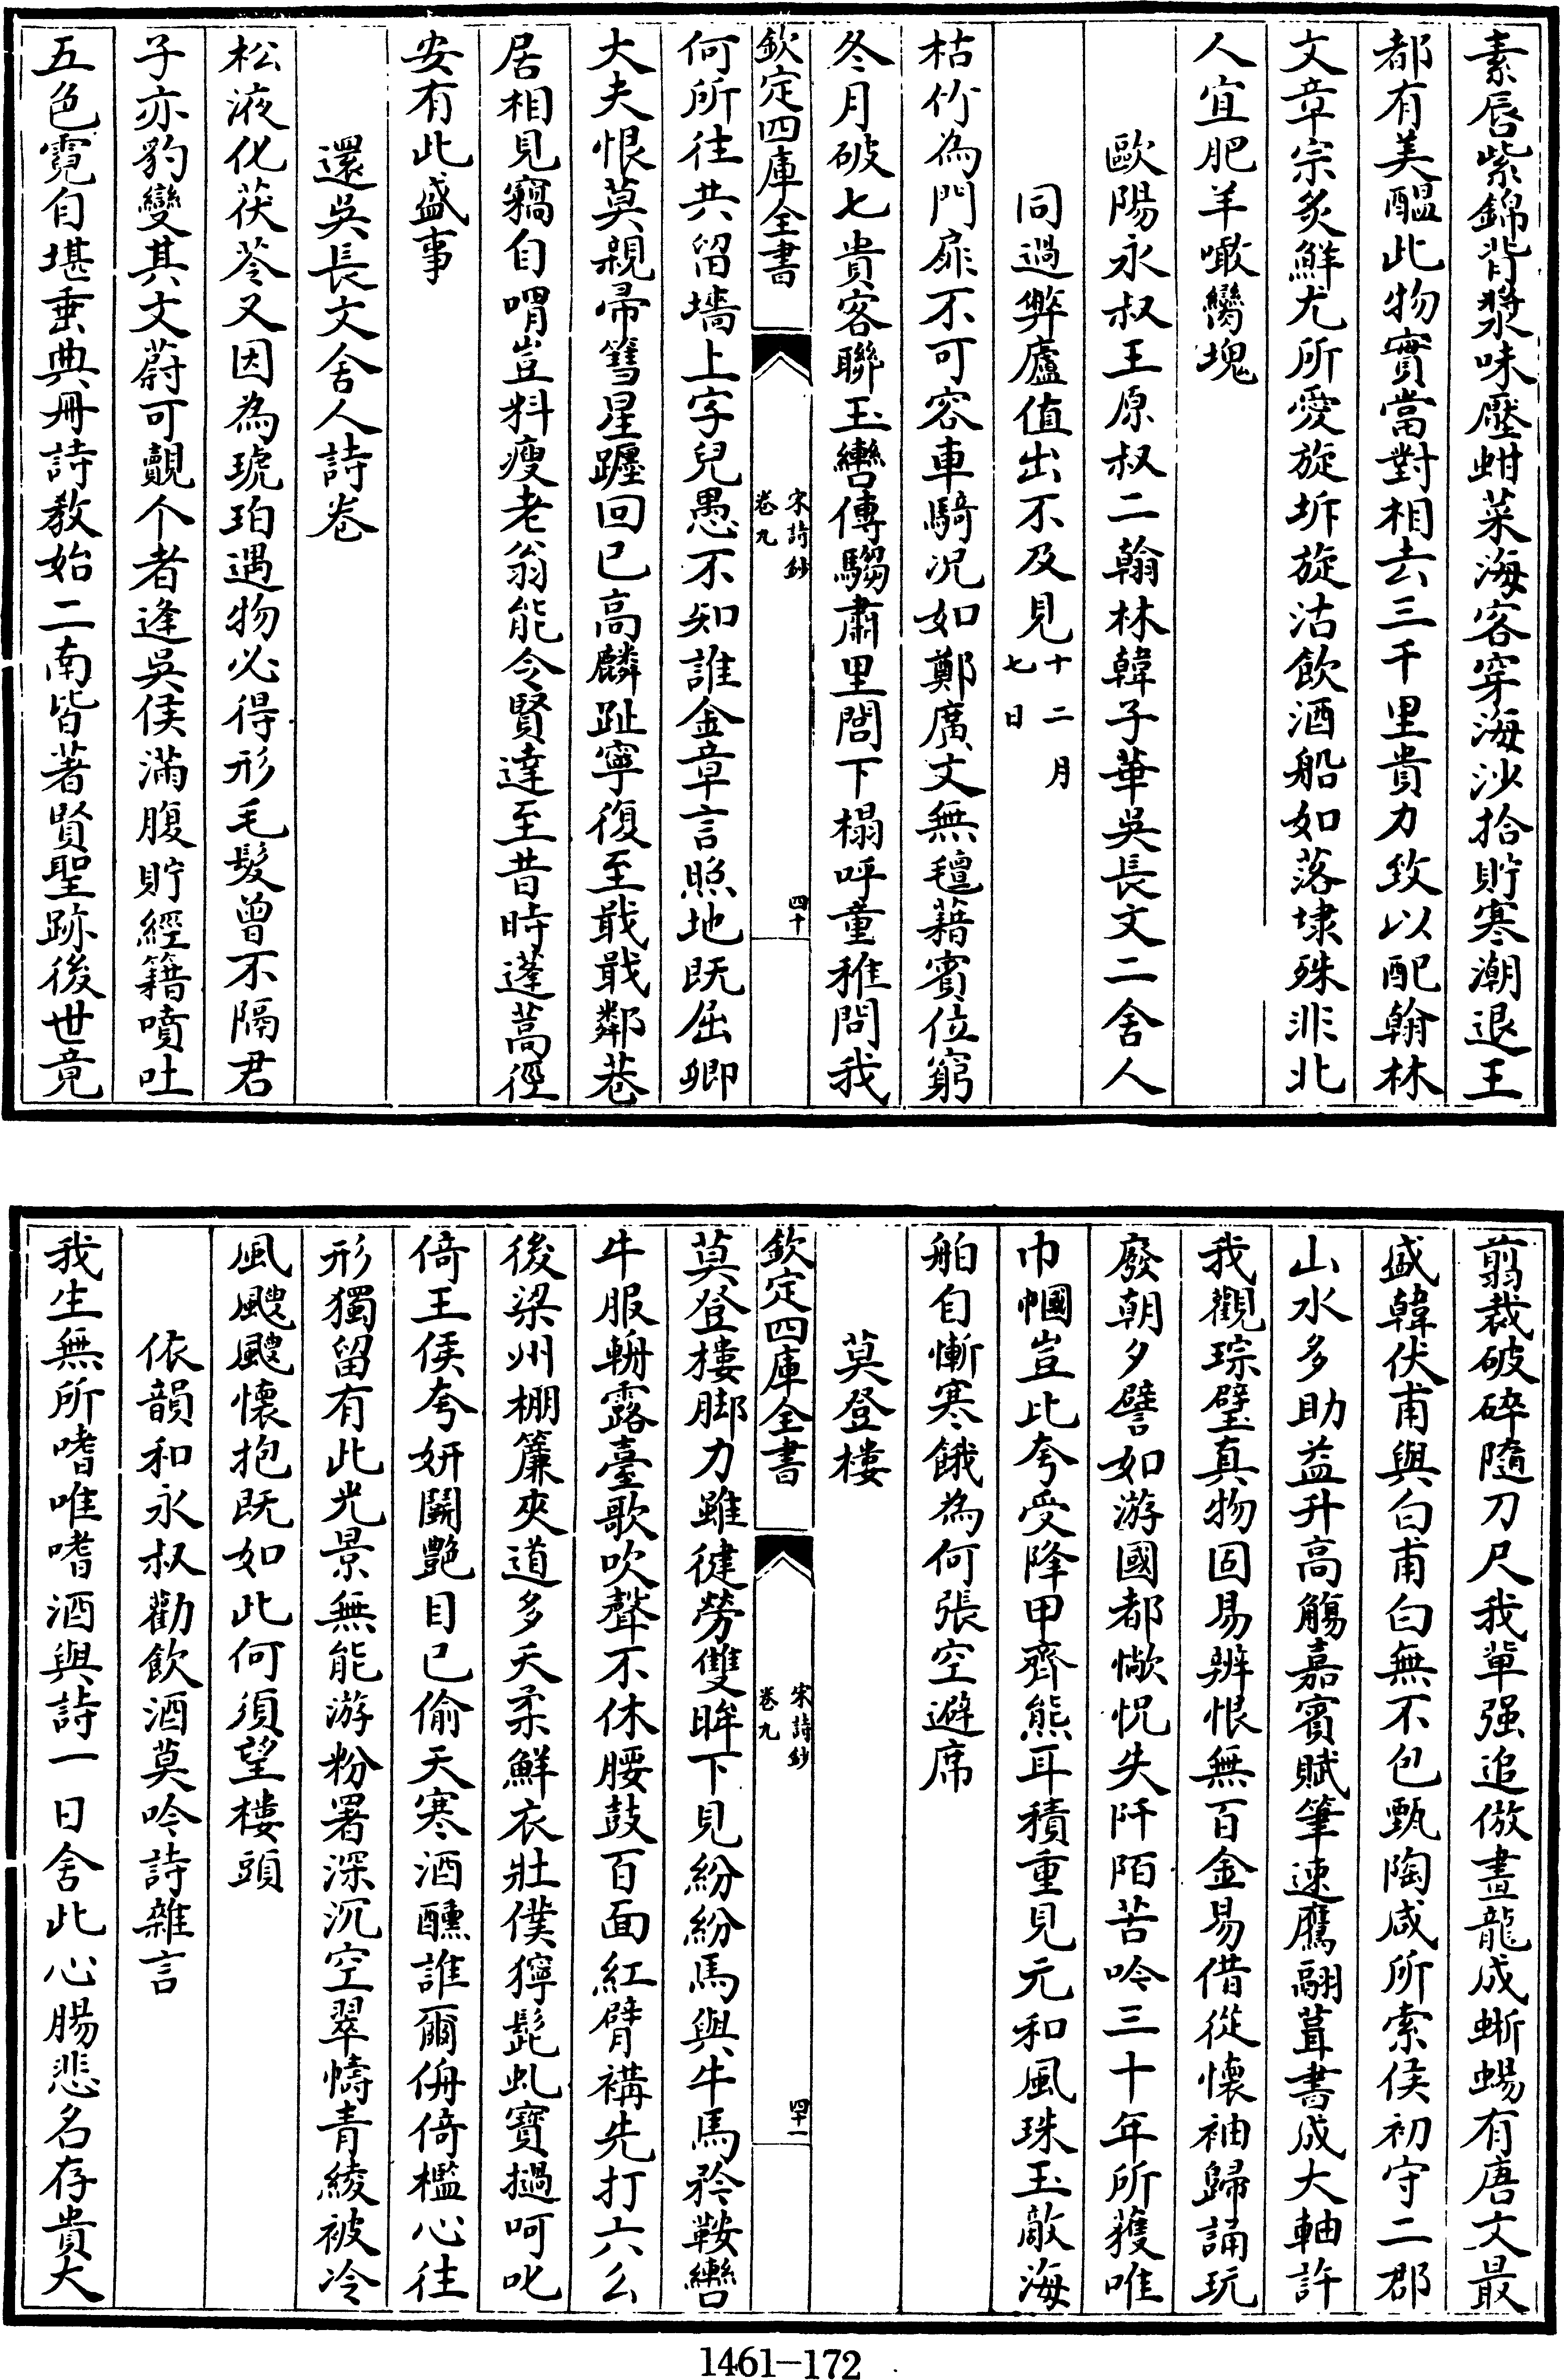 素唇紫錦背漿味壓蚶菜海客穿海沙拾貯寒潮退王
都有美醞此物實當對相去三千里貴力致以配翰林
文章宗炙鮮尤所愛旋坼旋沽飲酒船如落埭殊非北
人宜肥羊噉臠塊
歐陽永叔王原叔二翰林韓子華吳長文二舍人
同過弊廬值出不及見十二月七日
枯竹為門扉不可容車騎況如鄭廣文無氊藉賓位窮
冬月破七貴客聯玉轡傳騶肅里閭下榻呼童稚問我
欽定四庫全書
宋詩鈔
卷九
四十
何所往共留墻上字兒愚不知誰金章言照地既屈卿
大夫恨莫親帚篲星躔回已高麟趾寧復至戢戢鄰巷
居相見竊自喟豈料瘦老翁能令賢達至昔時蓬蒿徑
安有此盛事
還吳長文舍人詩卷
松液化茯苓又因為琥珀遇物必得形毛髮曾不隔君
子亦豹變其文蔚可覿个者逢吳侯滿腹貯經籍噴吐
五色霓自堪垂典冊詩教始二南皆著賢聖跡後世竟
翦裁破碎隨刀尺我輩强追倣畫龍成蜥蜴有唐文最
盛韓伏甫與白甫白無不包甄陶咸所索侯初守二郡
山水多助益升高觴嘉賓賦筆速鷹翮葺書成大軸許
我觀琮璧真物固易辨恨無百金易借從懷袖歸誦玩
廢朝夕譬如游國都惝怳失阡陌苦吟三十年所獲唯
巾幗豈比夸受降甲齊熊耳積重見元和風珠玉敵海
舶自慚寒餓為何張空避席
莫登樓
欽定四庫全書
宋詩鈔
卷九
四十一
莫登樓脚力雖健勞雙眸下見紛紛馬與牛馬矜鞍轡
牛服輈露臺歌吹聲不休腰鼓百面紅臂褠先打六么
後梁州棚簾夾道多夭柔鮮衣壯僕獰髭虬寶撾呵叱
倚王侯夸妍鬭艷目已偷天寒酒醺誰爾侜倚檻心往
形獨留有此光景無能游粉署深沉空翠幬青綾被冷
風颼颼懷抱既如此何須望樓頭
依韻和永叔勸飲酒莫吟詩雜言
我生無所嗜唯嗜酒與詩一日舍此心腸悲名存貴大
1461-172